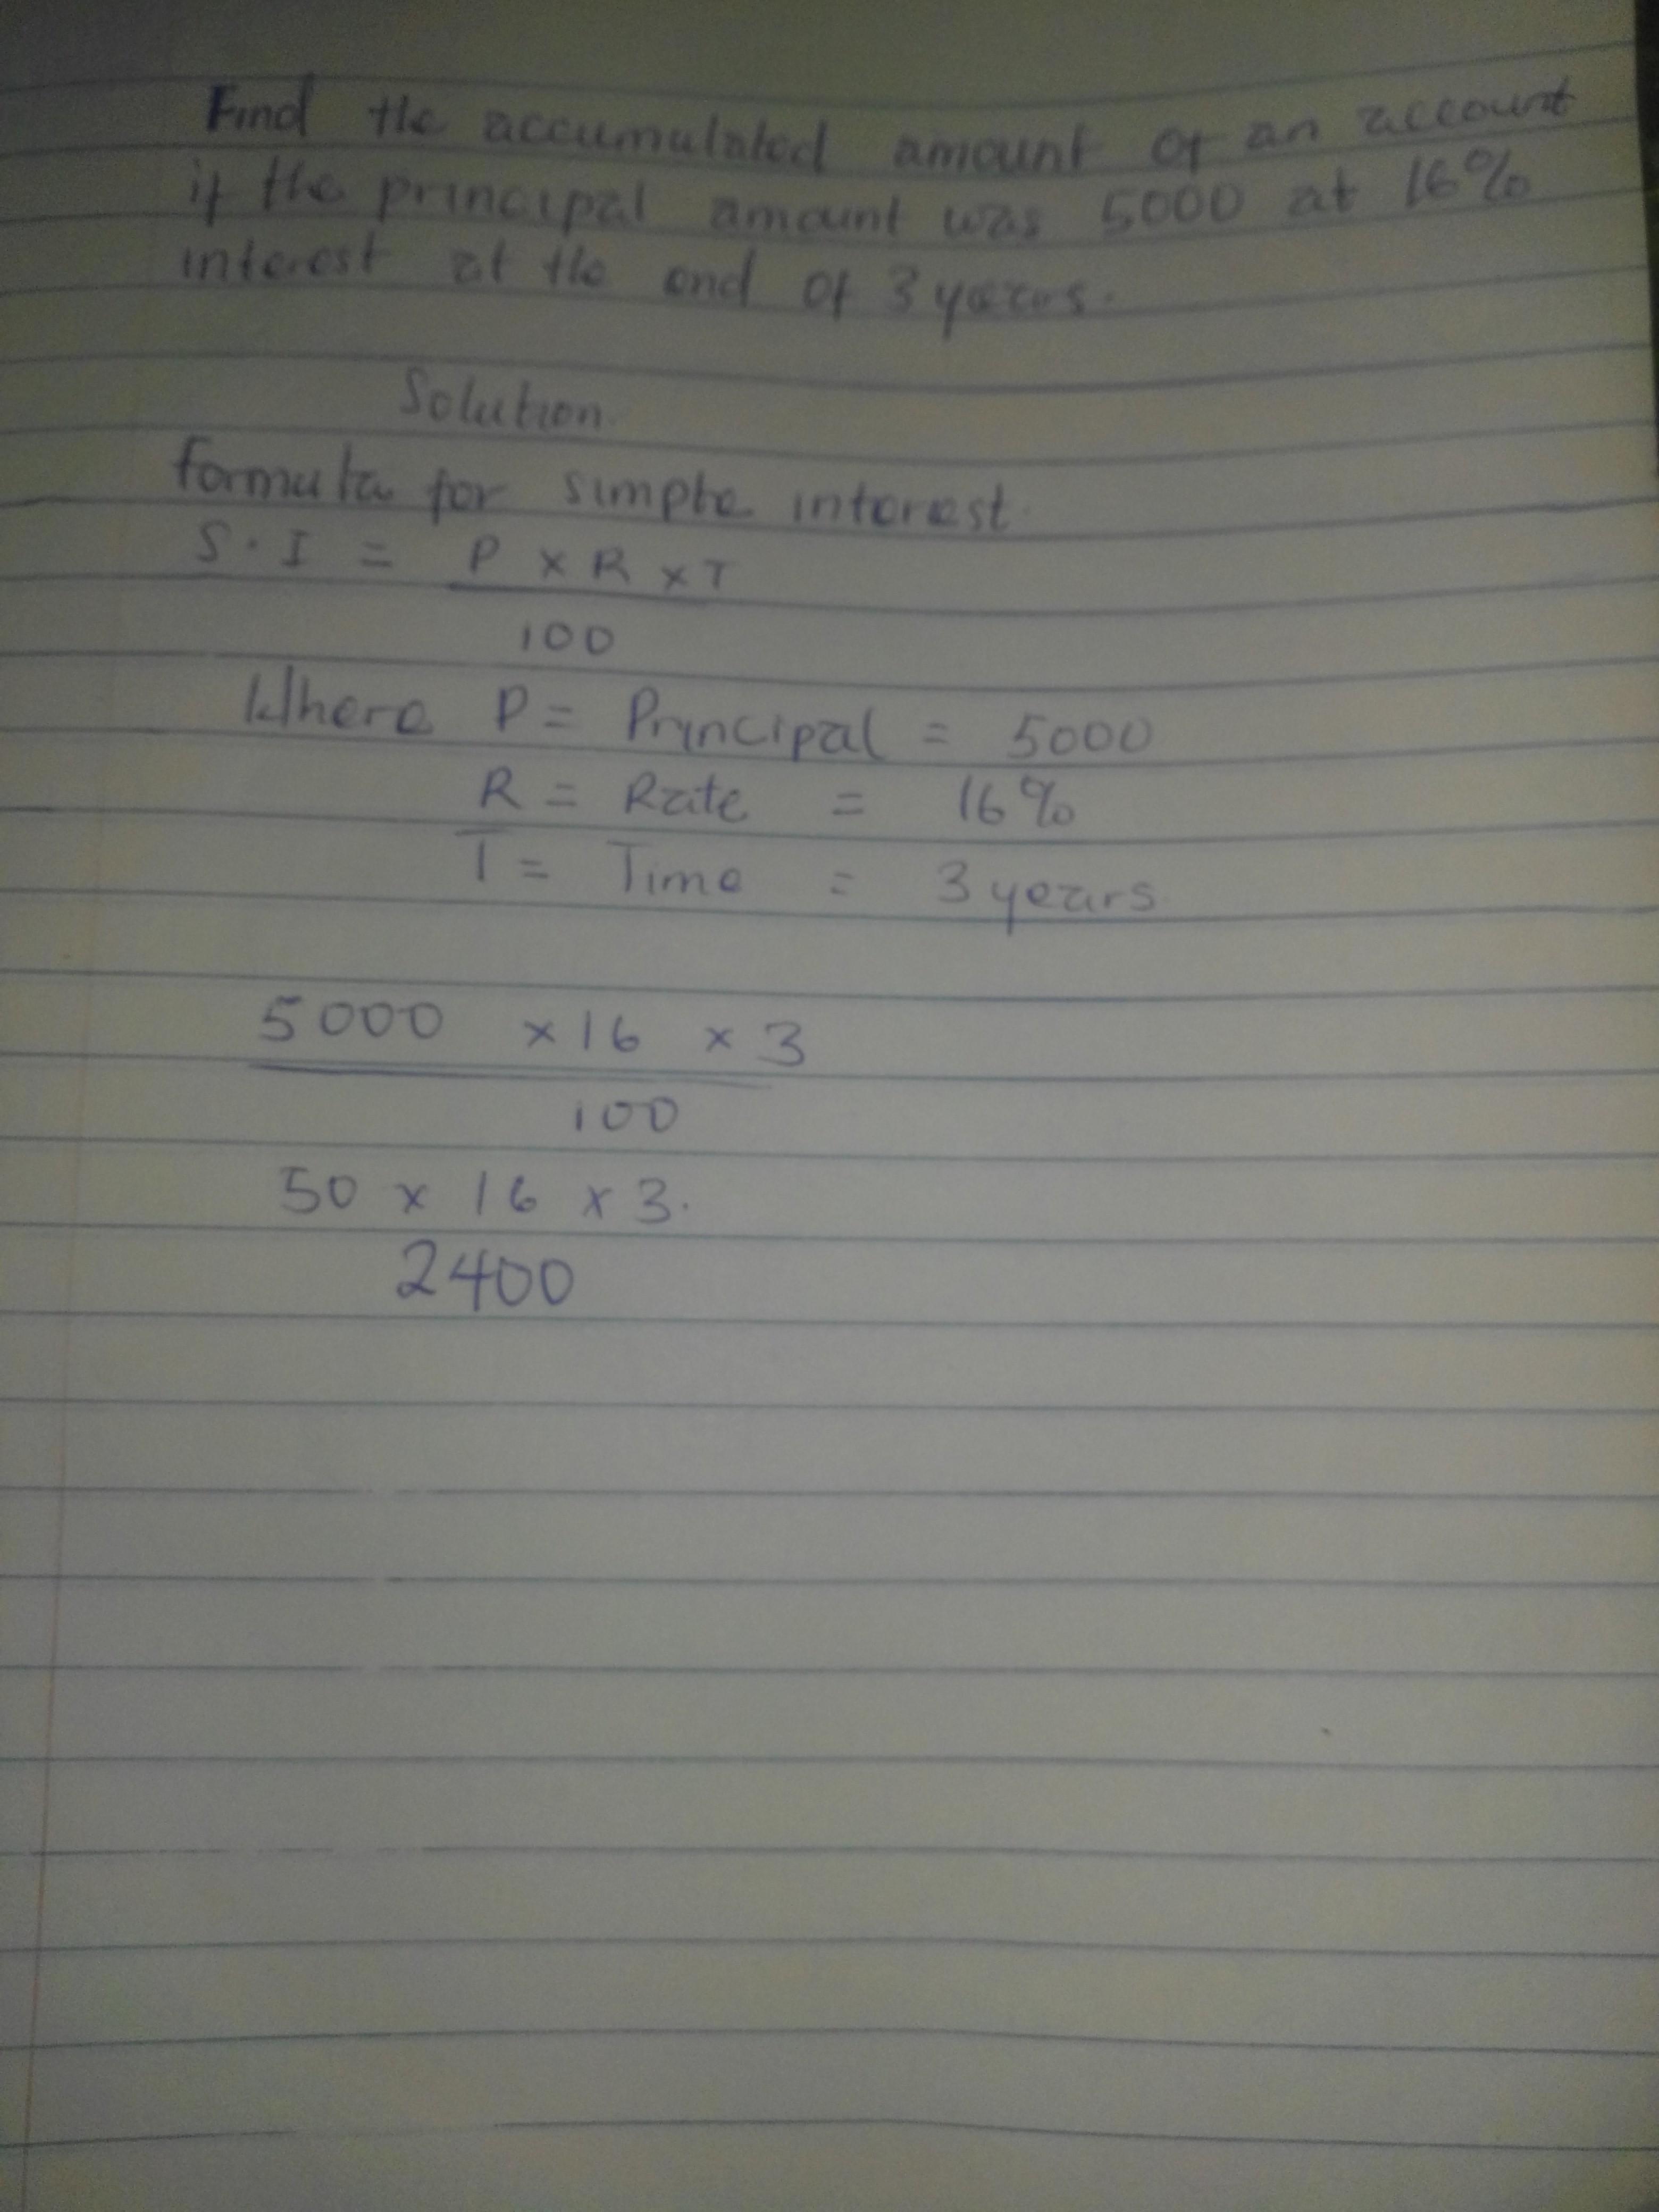 Find the accumulated amount of an account
if the principal amount was 5000 at 16%
interest at the end of 3 years.
Solution.
formula for simple interest.
S.I = P x R x T
100
Where P = Principal = 5000
R = Rate = 16%
T = Time = 3 years
5000 x 16 x 3
100
50 x 16 x 3.
2400